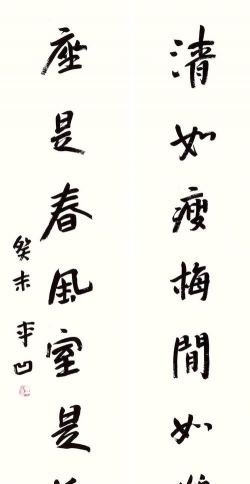 清如瘦梅閒如
座是春風室是
癸未 平凹